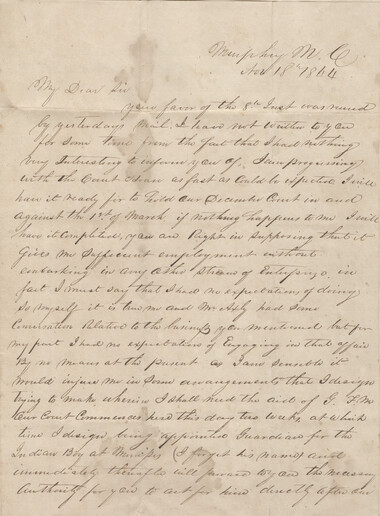 Murphy N. C
Nov 18th 1844
My Dear Sir
your favor of the 8th Inst was received
by yesterdays mail. I have not written to you
for some time from the fact that I had nothing
very Interesting to inform you of, I am progressing
with the Court House as fast as could be expected I will
have it ready for to hold our December Court in and
against the 1st of March if nothing happens to me I will
have it completed, you are Right in supposing that it
Gives me sufficient employment without
embarking in any other Stream of Enterprise, in
fact I must say that I had no expectations of doing
so myself it is true me and Mr had some
Conversation Relative to the business you mentioned but for
my part I had no expectation of Engaging in that affair
by no means at the present as I am sensible it
would injure me in some arrangements that I design
trying to make wherein I shall need the aid of
Our Court Commences here this day two weeks, at which
time I design being appointed Guardian for the
Indian Boy at (I forget his name) and
immediately thereafter will forward to you the necessary
Authority for you to act for him directly after our